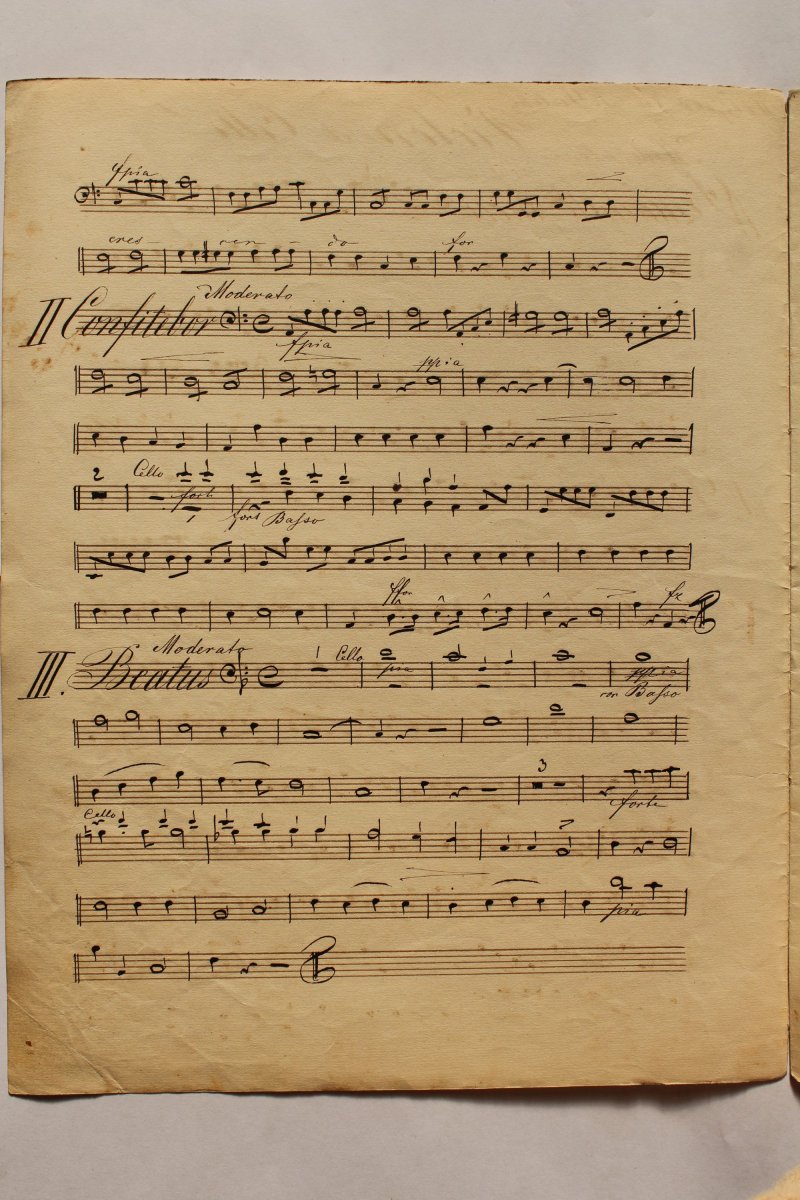 fpia
cres - cen - do for
Moderato
II Confitebor
fpia
ppia
2 Cello forte
1
fort Basso
ffor fz
Moderato
III. Beatus 1 Cello pia
ppia
con Basso
3
forte
Cello
pia